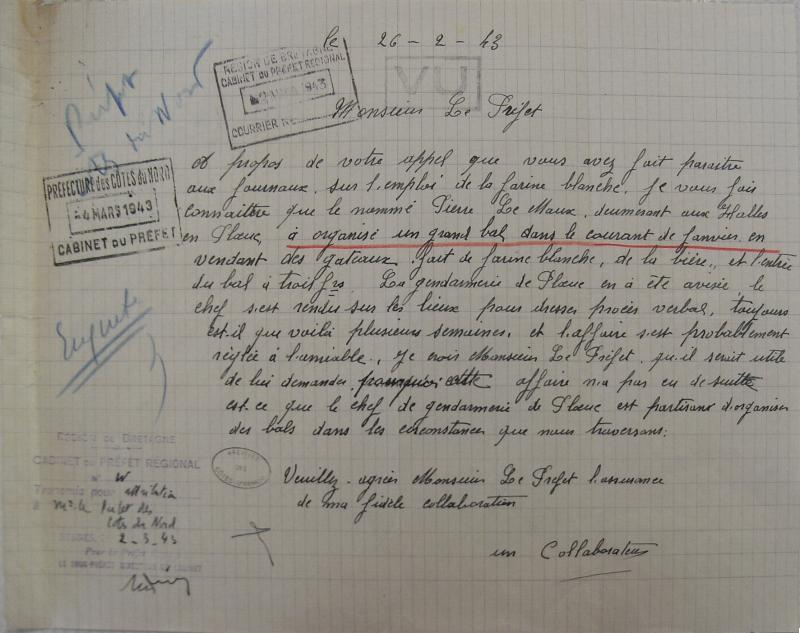 le 26-2-43
RÉGION DE BRETAGNE
CABINET du PRÉFET RÉGIONAL
MARS 1943
COURRIER
VU
Préfet
du Nord
Monsieur Le Préfet
PRÉFECTURE des CÔTES du NORD
-4 MARS 1943
CABINET du PRÉFET
A propos de votre appel que vous avez fait paraitre
aux journaux, sur l'emploi de la farine blanche, Je vous fais
connaître que le nommé Pierre Le Maux, demeurant aux Halles
en Plœuc, à organisé un grand bal dans le courant de Janvier en
vendant des gateaux fait de farine blanche, de la bière, et l'entrée
du bal à trois frs. La gendarmerie de Plœuc en à été avisée le
chef s'est rendu sur les lieux pour dresser procès verbal, toujours
est-il que voilà plusieurs semaines, et l'affaire s'est probablement
réglée à l'amiable, Je crois Monsieur Le Préfet, qu'il serait utile
de lui demander pourquoi cette affaire n'a pas eu de suite
est-ce que le chef de gendarmerie de Plœuc est partisan d'organiser
des bals dans les circonstances que nous traversons.
Enquête
Veuillez agréer Monsieur Le Préfet l'assurance
de ma fidèle collaboration
un Collaborateur
RÉGION DE BRETAGNE
CABINET du PRÉFET RÉGIONAL
N° W
Transmis pour attribution
à Mr le Préfet des
Côtes du Nord
RENNES, 2-3-43
Pour le Préfet
LE SOUS-PRÉFET DIRECTEUR DU CABINET
ARCHIVES
DES
CÔTES D'ARMOR